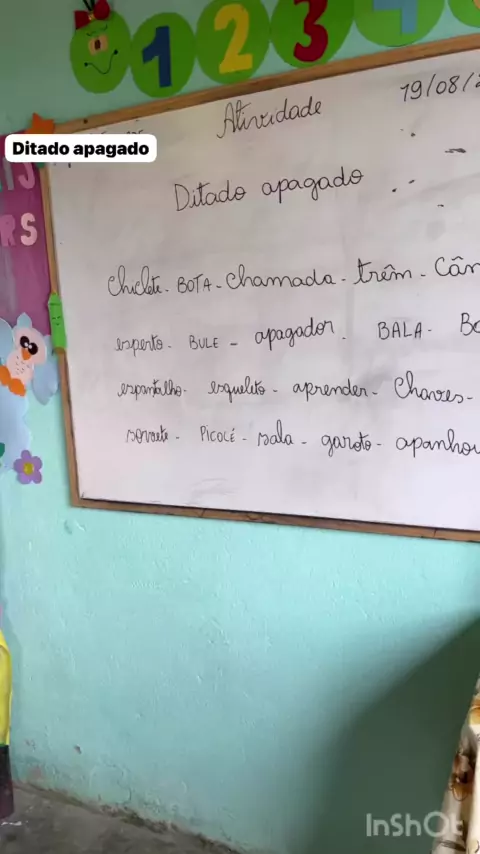 1 2 3 4
Atividade 19/08/2
Ditado apagado
Ditado apagado
RS
Chiclete - BOTA - Chamada - trêm - Cân
esperto - BULE - apagador. BALA -
espantalho - esqueleto - aprender - Chaves -
sorvete - PICOLÉ - sala - garoto - apanhou
InShOt